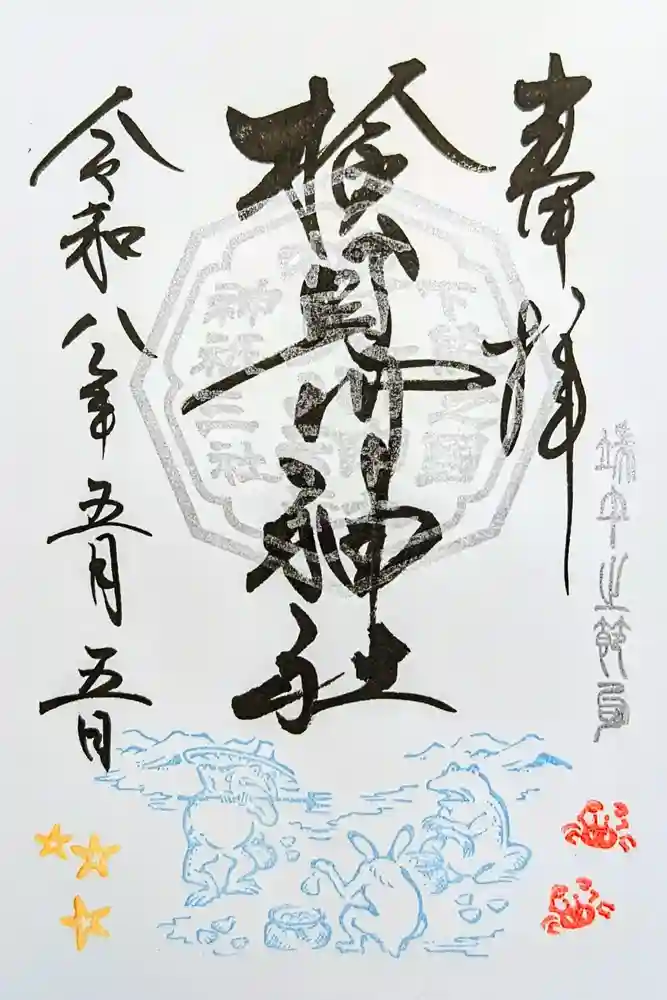 奉拝
端午之節句
検見川神社
下総之國
神祇三社
令和八年五月五日